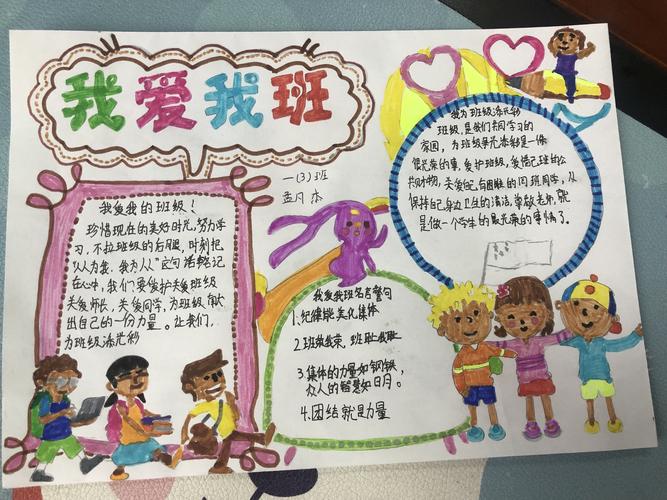 我爱我班
一(3)班
孟凡杰
我爱我的班级！
珍惜现在的美好时光，努力学
习，不拉班级的后腿，时刻把
“人人为我，我为人人”这句话牢记
在心中，我们要爱护关爱班级
关爱师长，关爱同学，为班级献
出自己的一份力量。让我们，
为班级添光彩
我为班级添光彩
班级，是我们共同学习的
家园，为班级争光添彩是一件
很光荣的事，爱护班级，爱惜己班的公
共财物，关爱自己有困难的同班同学，
保持自己身边卫生的清洁，尊敬老师，就
是做一个学生的最光荣的事情了。
我爱我班名言警句
1.纪律能美化集体
2.班荣我荣，班耻我耻
3.集体的力量如钢铁，
众人的智慧如日月。
4.团结就是力量